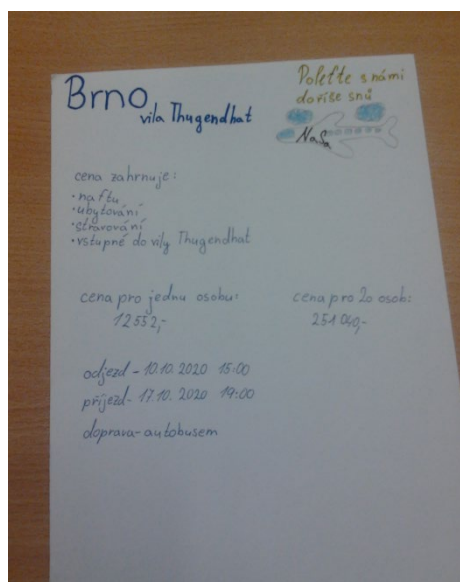 Brno
vila Thugendhat
Poleťte s námi
do říše snů
NaSa
cena zahrnuje:
• naftu
• ubytování
• stravování
• vstupné do vily Thugendhat
cena pro jednu osobu:
12552,-
cena pro 20 osob:
251 040,-
odjezd - 10.10. 2020 15:00
příjezd - 17.10. 2020 19:00
doprava - autobusem